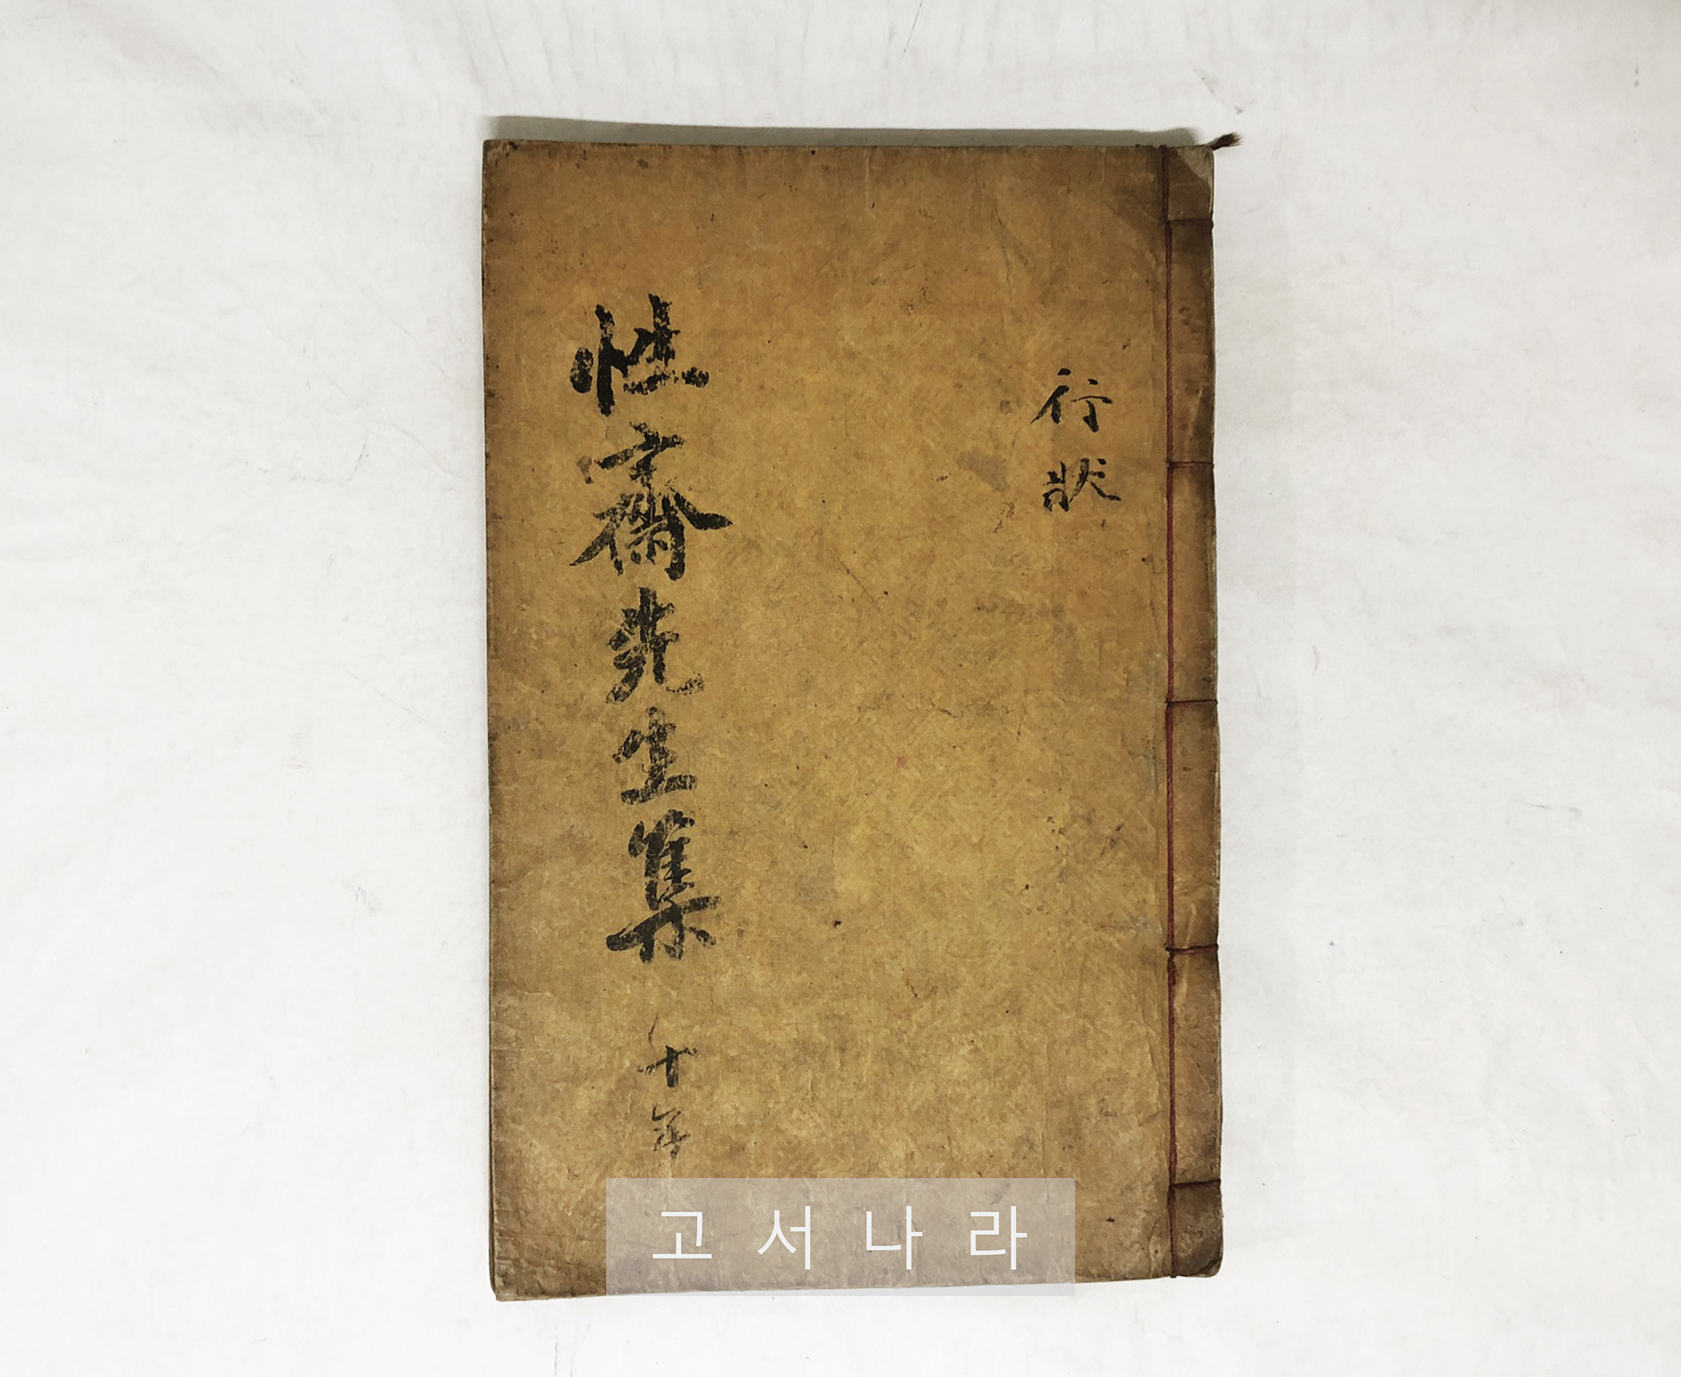 行狀
性齋先生集
十
고서나라